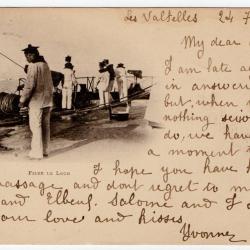 Les Valtelles 24 7
My dear
I am late a
in answeri
but, when
nothing sero
do, we hav
a moment
FILER LE LOCH
I hope you have h
passage and dont regret to m
and Elbeuf. Salome and I s
our love and kisses
Yvonne